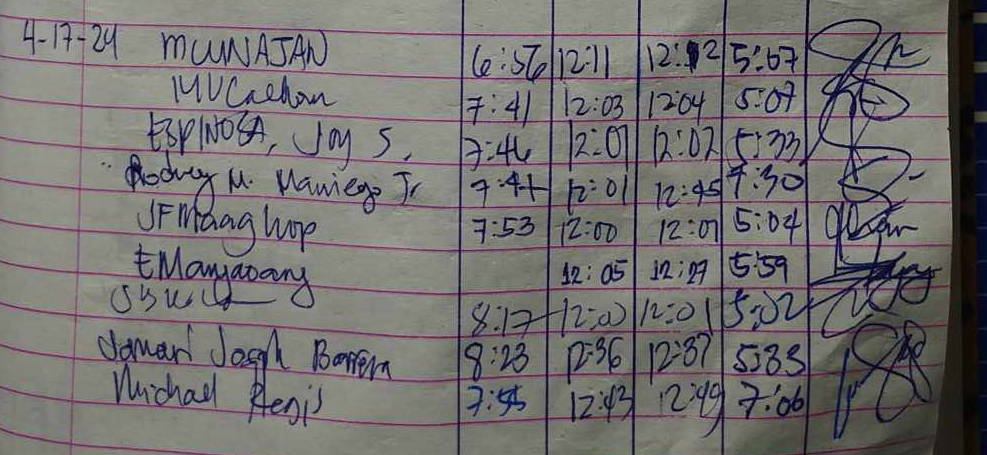 4-17-24 MUNAJAN 6:56 12:11 12:12 5:07
7:41 12:03 12:04 5:07
ESPINOSA, Joy S. 7:46 12:01 12:02 5:33
Rodney M. Maniego Jr. 7:41 12:01 12:45 7:30
JFMaaghop 7:53 12:00 12:01 5:04
EManjaoang 12:05 12:27 5:59
8:17 12:00 12:01 5:02
Jomari Joseph Barrera 8:23 12:36 12:37 5:33
Michael Regis 7:55 12:43 12:49 7:06